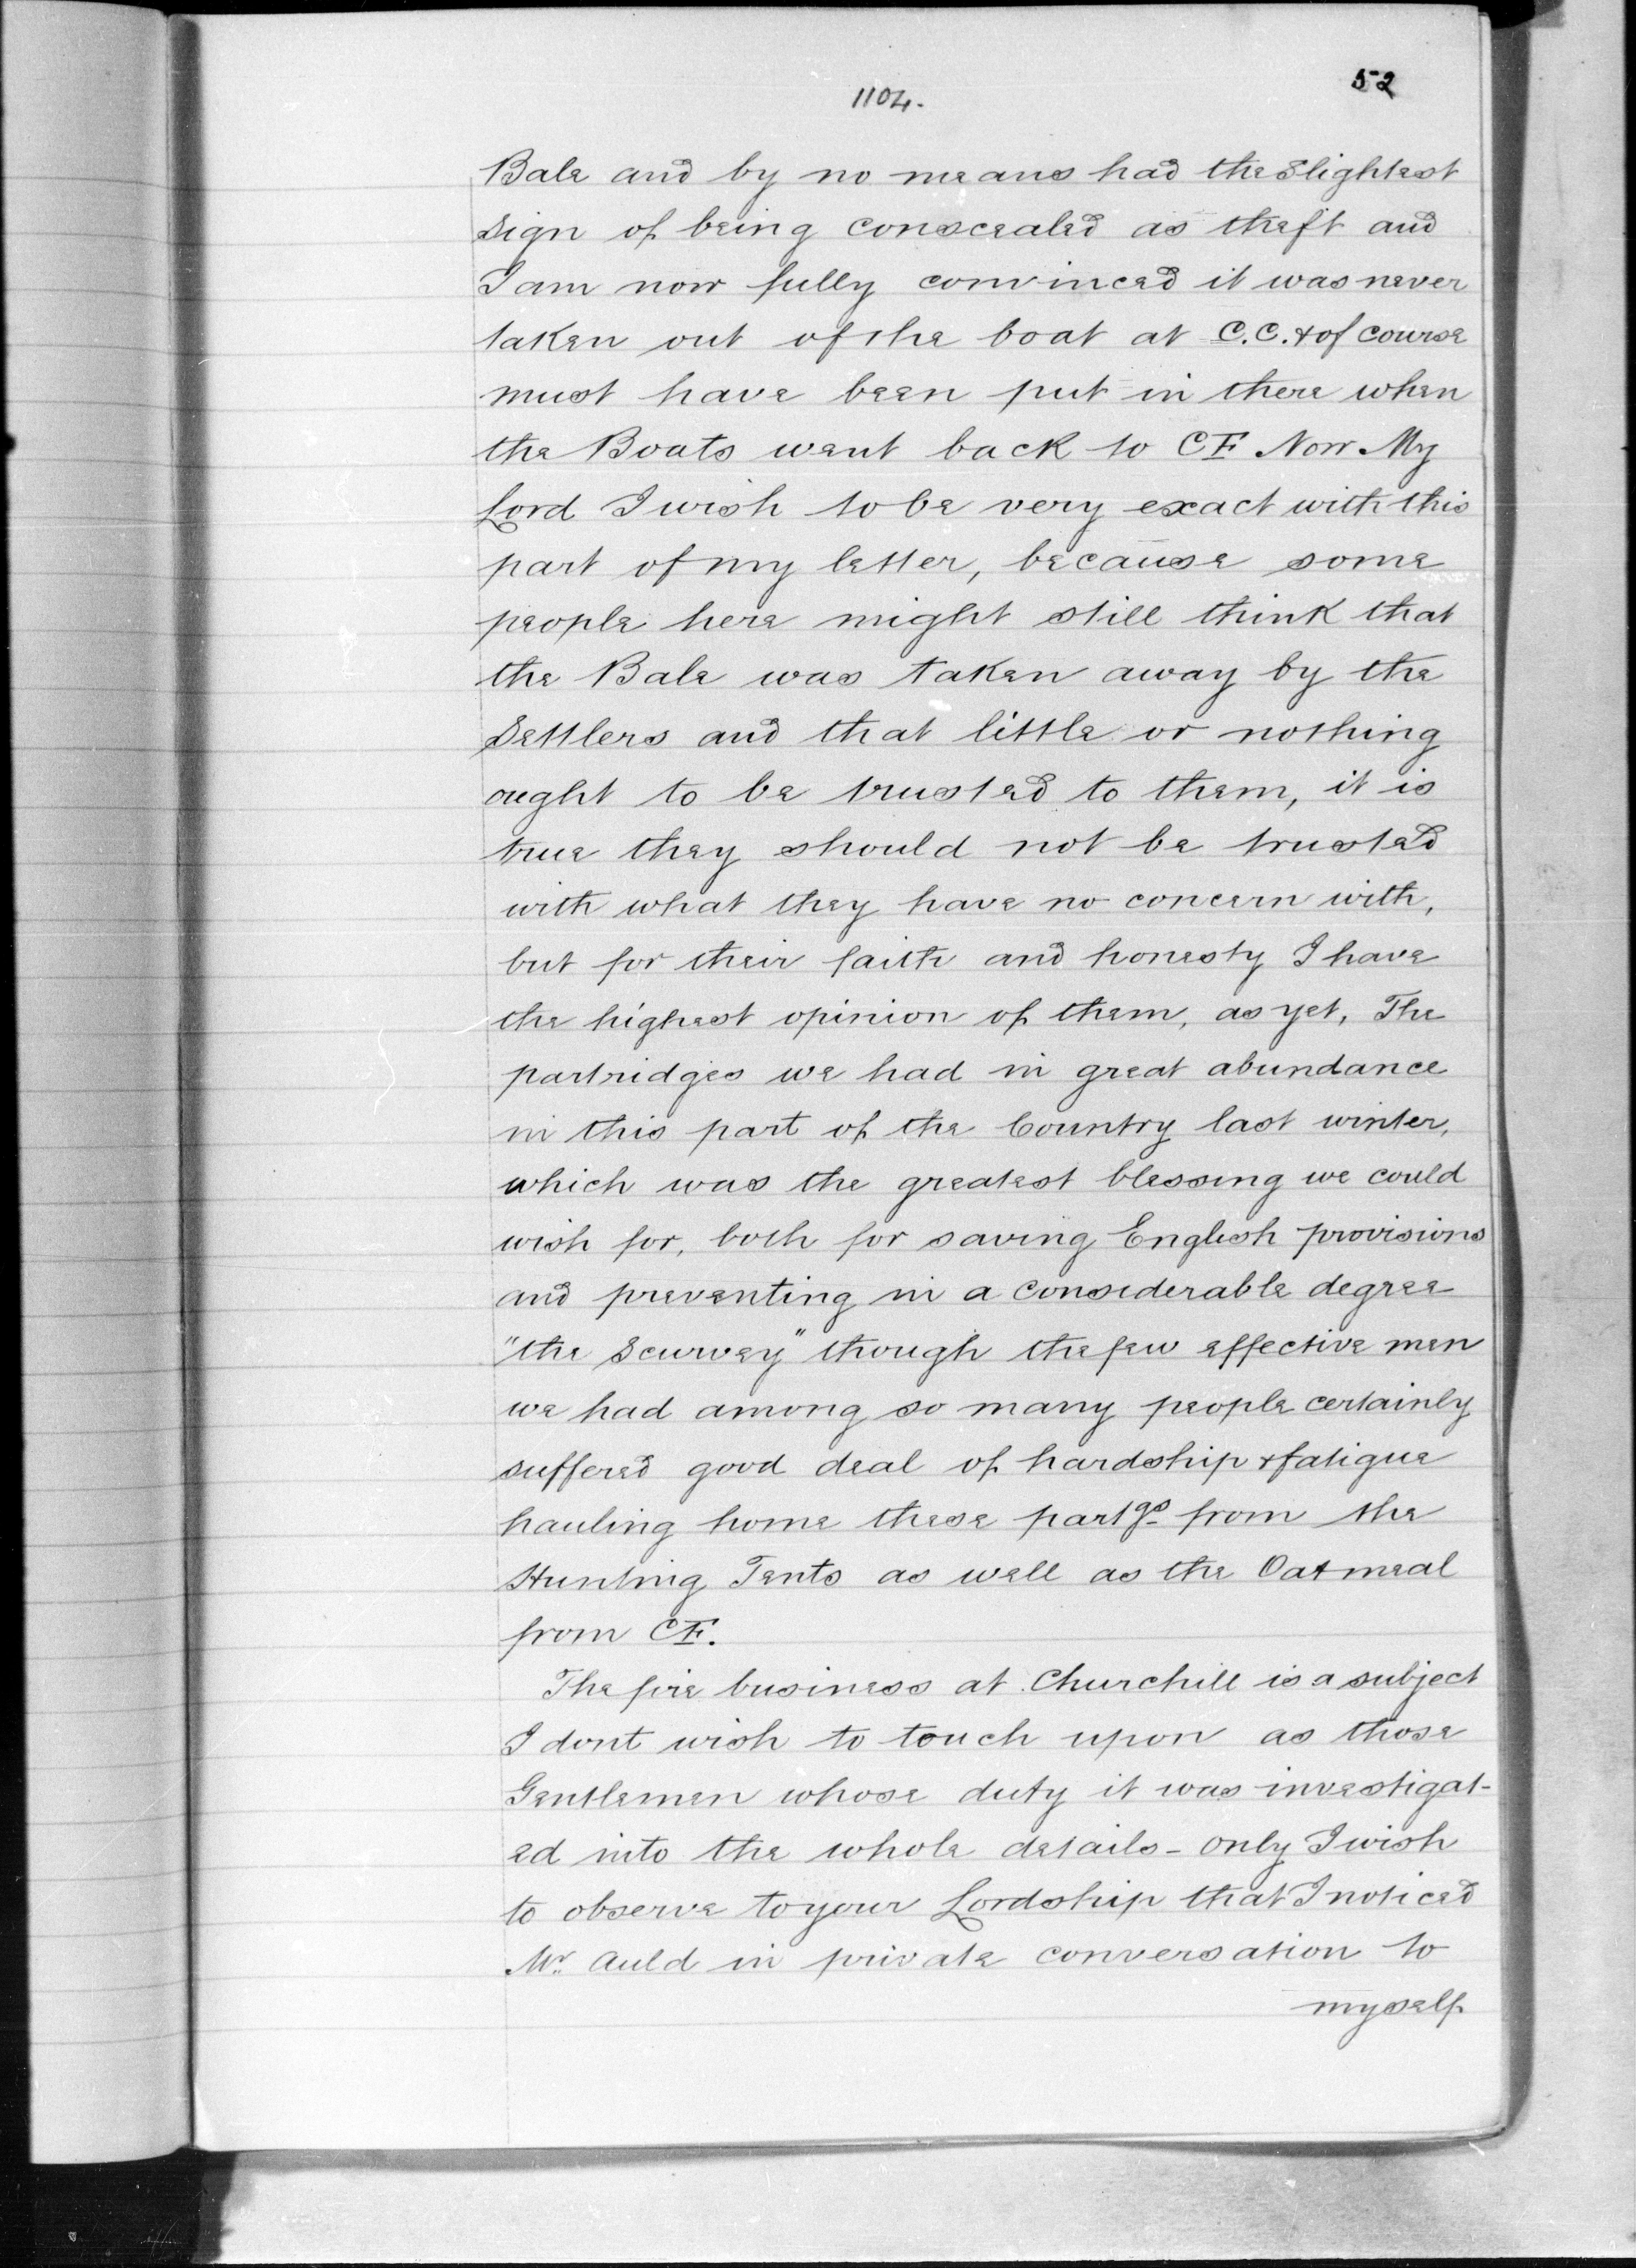 52
1104.
Bale and by no means had the slightest
sign of being conscealed as theft and
I am now fully convinced it was never
taken out of the boat at C.C. & of course
must have been put in there when
the Boats went back to CF Now My
Lord I wish to be very exact with this
part of my letter, because some
people here might still think that
the Bale was taken away by the
Settlers and that little or nothing
ought to be trusted to them, it is
true they should not be trusted
with what they have no concern with,
but for their faith and honesty I have
the highest opinion of them, as yet, The
partridges we had in great abundance
in this part of the Country last winter,
which was the greatest blessing we could
wish for, both for saving English provisions
and preventing in a considerable degree
"the Scurvey" though the few effective men
we had among so many people certainly
suffered good deal of hardship & fatigue
hauling home these partgs from the
Hunting Tents as well as the Oatmeal
from CF.
The fire business at Churchill is a subject
I dont wish to touch upon as those
Gentlemen whose duty it was investigat-
ed into the whole details - only I wish
to observe to your Lordship that I noticed
Mr. Auld in private conversation to
myself